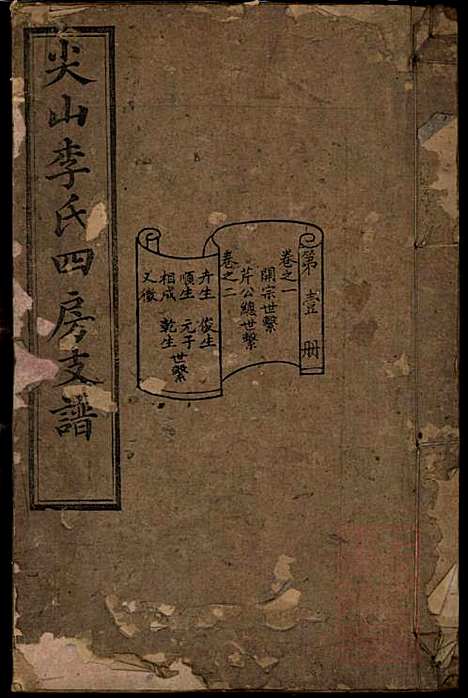 尖山李氏四房支譜
第壹冊
卷之一
開宗世繫
芹公總世繫
卷之二
卉生 俊生
順生 元子
相成 乾生
又徵
世繫